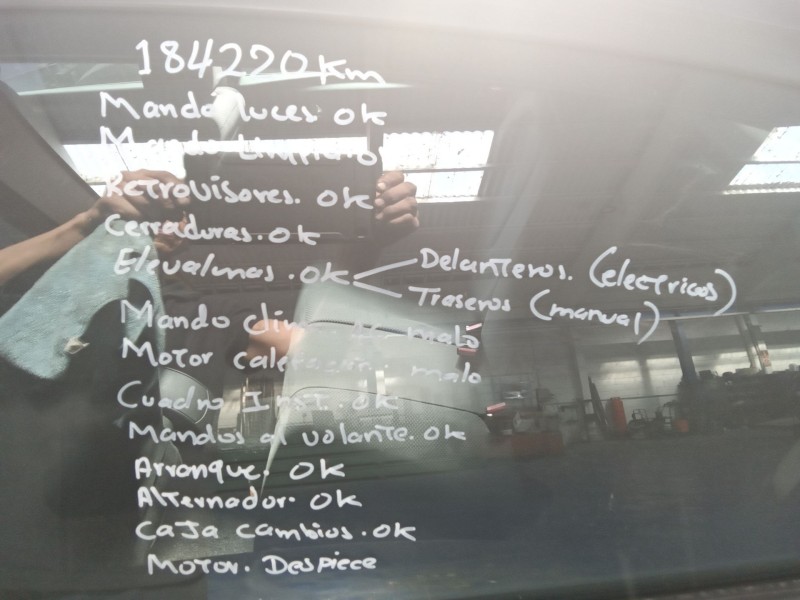 184220 Km
Mando luces. ok
Mando Limpia
Retrovisores. ok
Cerraduras. ok
Elevalunas. ok Delanteros. (electricos)
Traseros (manual)
Mando clim malo
Motor malo
Cuadro Inst. ok
Mandos al volante. ok
Arranque. ok
Alternador. ok
Caja cambios. ok
Motor. Despiece